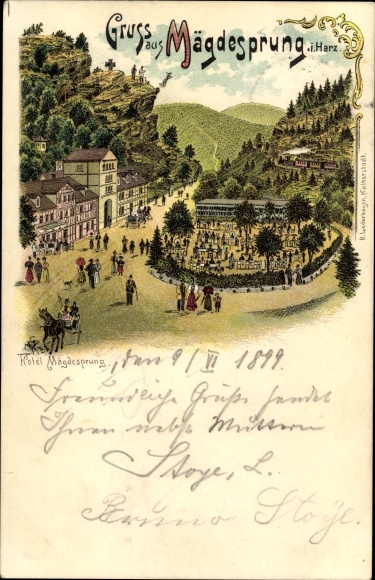 Gruss aus Mägdesprung i. Harz.
Hotel Mägdesprung.
, den 9/VI 1899.
Freundliche Grüße sendet
Ihnen nebst Muttern
Stoye, L.
Bruno Stoÿe.